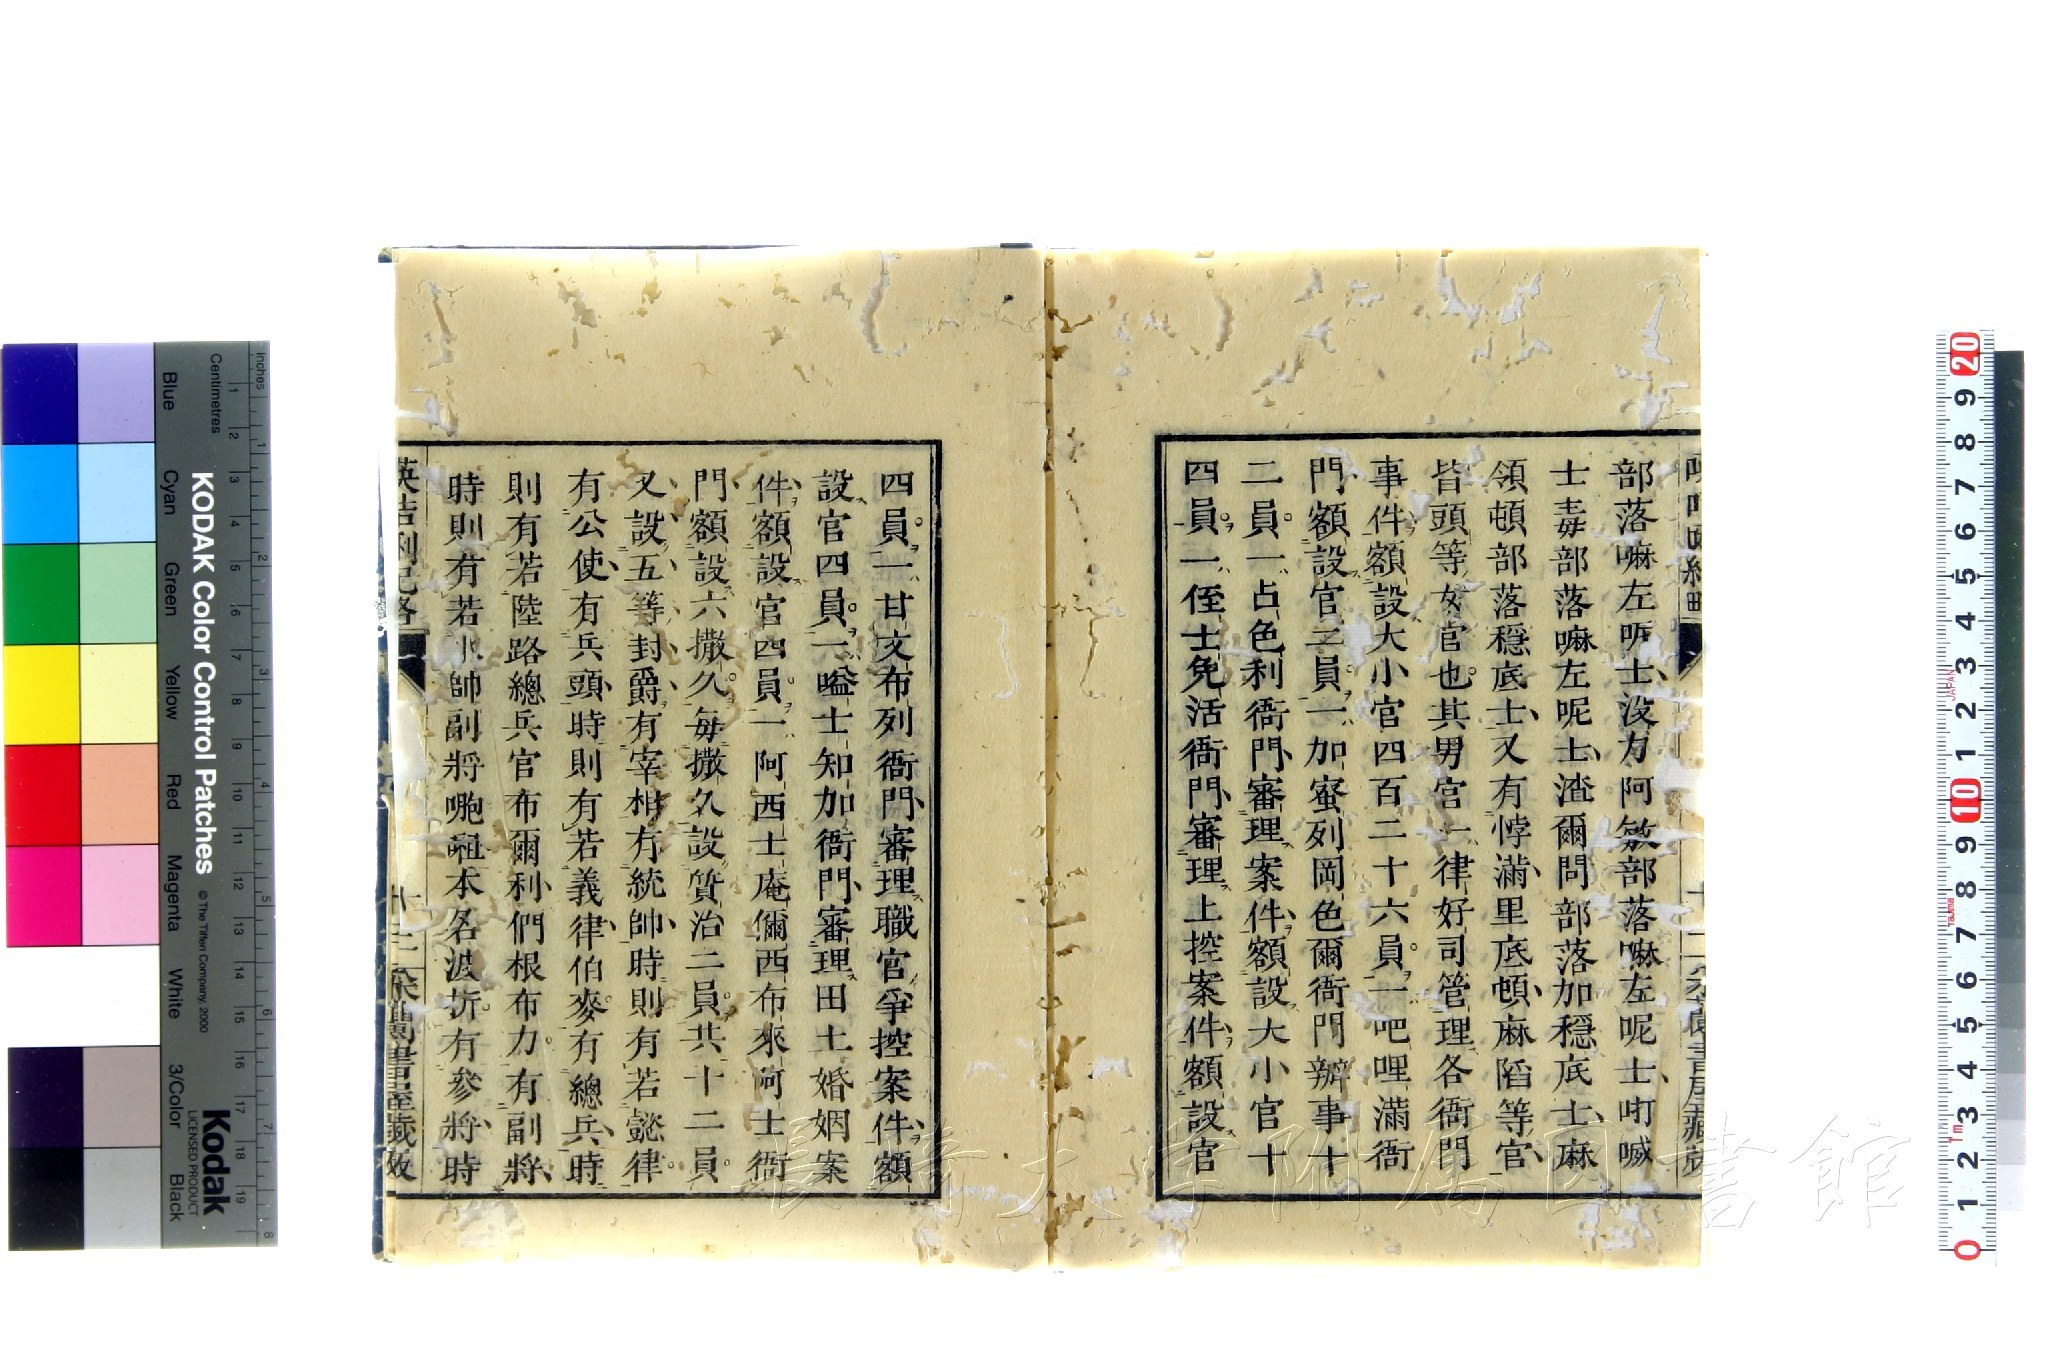 部落嘛左呢士沒力阿敏部落嘛左呢士咑喊
士毒部落嘛左呢士渣爾問部落加穩底士麻
領頓部落穩底士又有悖滿里底頓麻陷等官
皆頭等女官也其男官一律好司管理各衙門
事件額設大小官四百二十六員一吧哩滿衙
門額設官二員一加蜜列岡色爾衙門辦事十
二員一占色利衙門審理案件額設大小官十
四員一侄士免活衙門審理上控案件額設官
四員一甘文布列衙門審理職官爭控案件額
設官四員一嗌士知加衙門審理田土婚姻案
件額設官四員一阿西士庵儞西布來阿士衙
門額設六撒久每撒久設質治二員共十二員
又設五等封爵有宰相有統帥時則有若懿律
有公使有兵頭時則有若義律伯麥有總兵時
則有若陸路總兵官布爾利們根布力有副將
時則有若水師副將哅𠼮本名波圻有參將時
英吉利紀略
十三
長崎大学附属図書館
KODAK Color Control Patches
© The Tiffen Company, 2000
Kodak
LICENSED PRODUCT
Inches
Centimetres
Blue
Cyan
Green
Yellow
Red
Magenta
White
3/Color
Black
JAPAN
Tajima